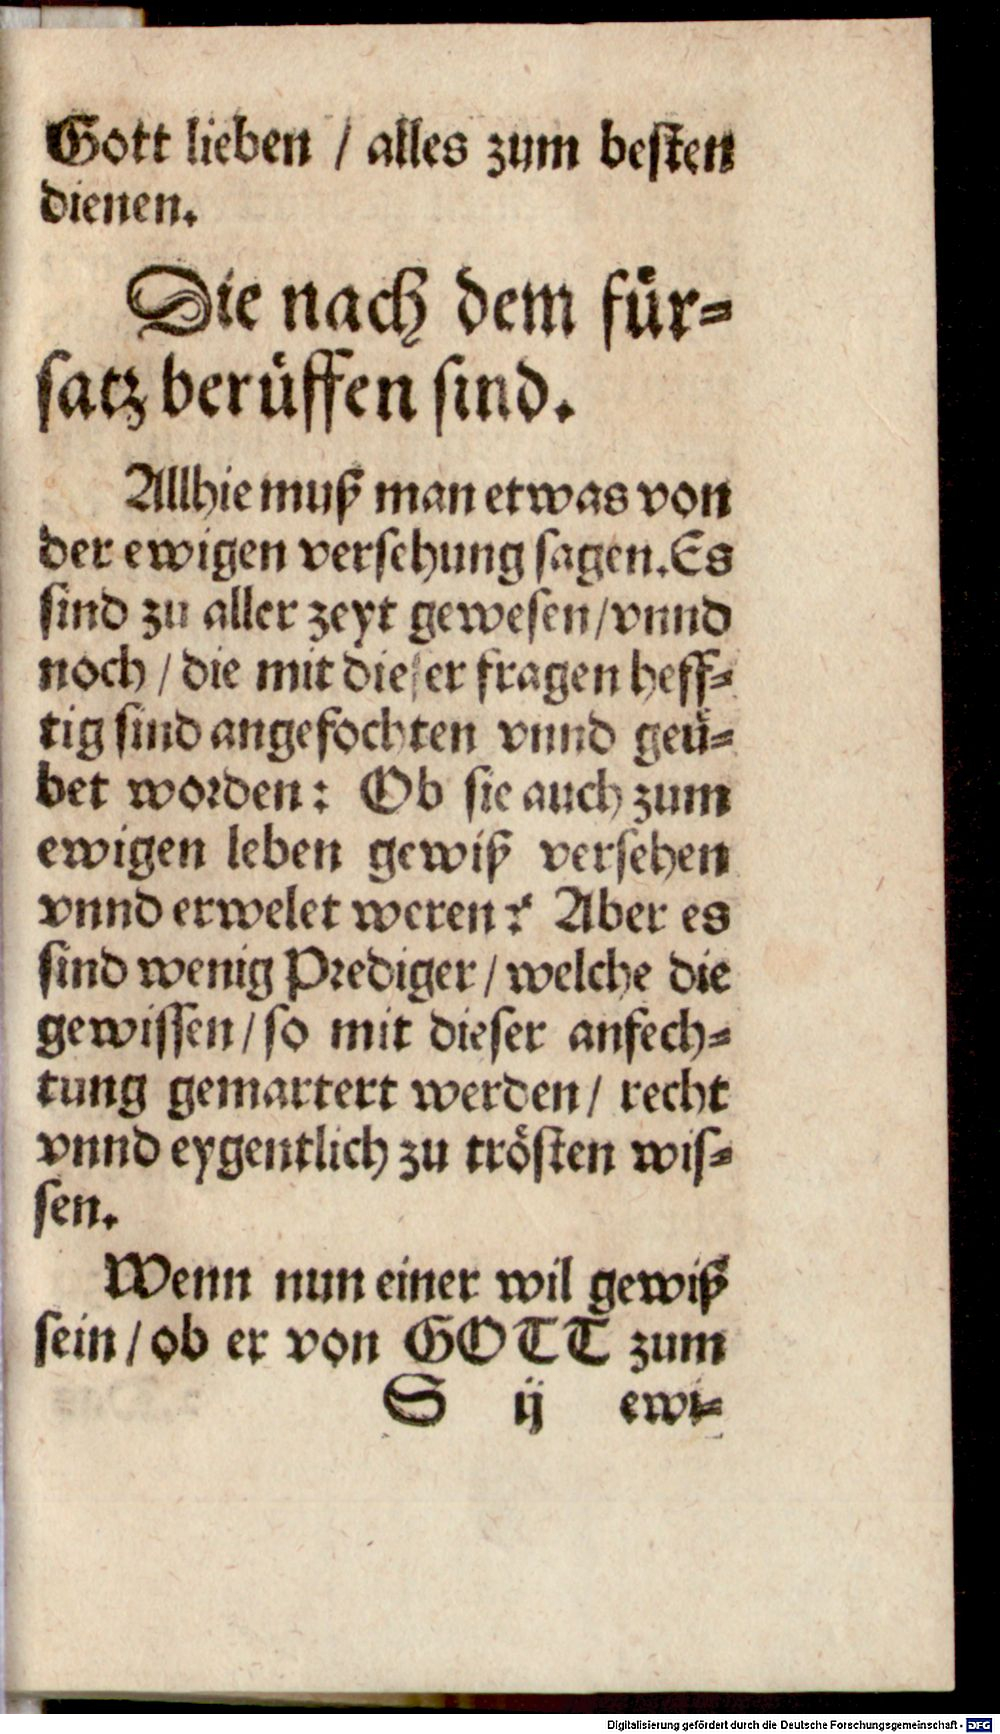 Gott lieben / alles zum besten
dienen.
Die nach dem für-
satz berüffen sind.
Allhie muß man etwas von
der ewigen versehung sagen. Es
sind zu aller zeyt gewesen / vnnd
noch / die mit dieser fragen heff-
tig sind angefochten vnnd geü-
bet worden: Ob sie auch zum
ewigen leben gewiß versehen
vnnd erwelet weren? Aber es
sind wenig Prediger / welche die
gewissen / so mit dieser anfech-
tung gemartert werden / recht
vnnd eygentlich zu trösten wis-
sen.
Wenn nun einer wil gewiß
sein / ob er von GOTT zum
S ij ewi-
Digitalisierung gefördert durch die Deutsche Forschungsgemeinschaft - DFG